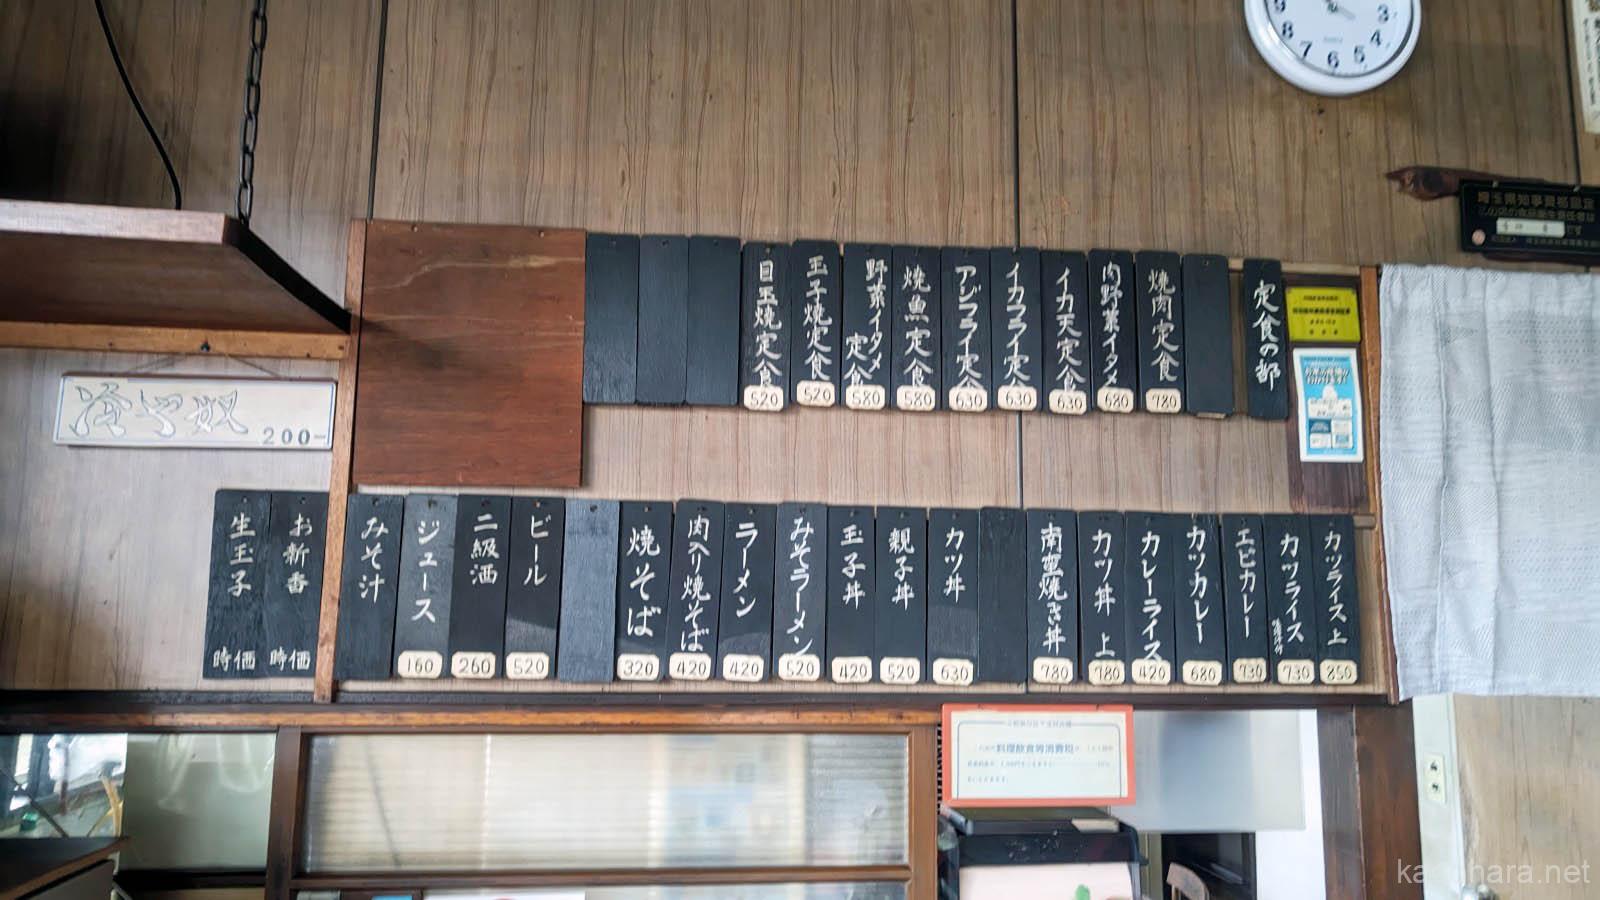 定食の部
焼肉定食
780
肉野菜イタメ
680
イカ天定食
630
イカフライ定食
630
アジフライ定食
630
焼魚定食
580
野菜イタメ
定食
580
玉子焼定食
520
目玉焼定食
520
カツライス上
850
カツライス
730
エビカレー
730
カツカレー
680
カレーライス
420
カツ丼 上
780
南蛮焼き丼
780
カツ丼
630
親子丼
520
玉子丼
420
みそラーメン
520
ラーメン
420
肉入り焼そば
420
焼そば
320
ビール
520
二級酒
260
ジュース
160
みそ汁
お新香
時価
生玉子
時価
冷奴
200
埼玉県知事資格認定
この店の食品衛生責任者は
です
料理飲食等消費税
3
4
5
6
7
8
9
kajihara.net